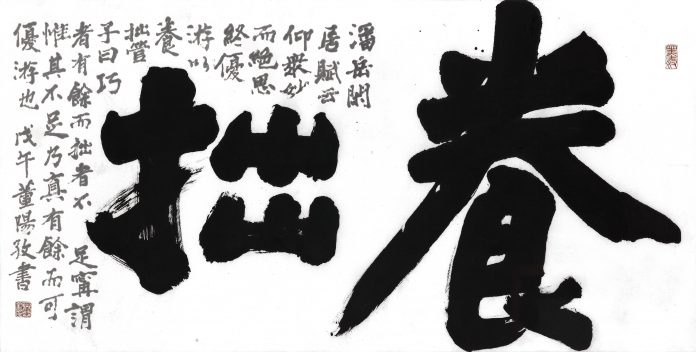 養拙
潘岳閑
居賦云
仰衆妙
而絶思
終優
游以
養
拙管
子曰巧
者有餘而拙者不足寧謂
惟其不足乃真有餘而可
優游也 戊午董陽孜書